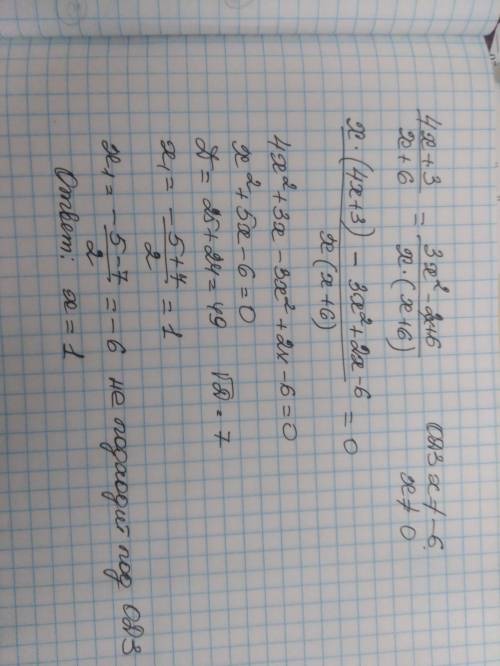 (4x+3)/(x+6) = (3x²-2x+6)/(x·(x+6)) ОДЗ x≠-6
x≠0
(x·(4x+3) - 3x²+2x-6)/(x(x+6)) = 0
4x²+3x-3x²+2x-6=0
x²+5x-6=0
D = 25+24=49 √D = 7
x₁ = (-5+7)/2 = 1
x₁ = (-5-7)/2 = -6 не подходит под ОДЗ
Ответ: x=1